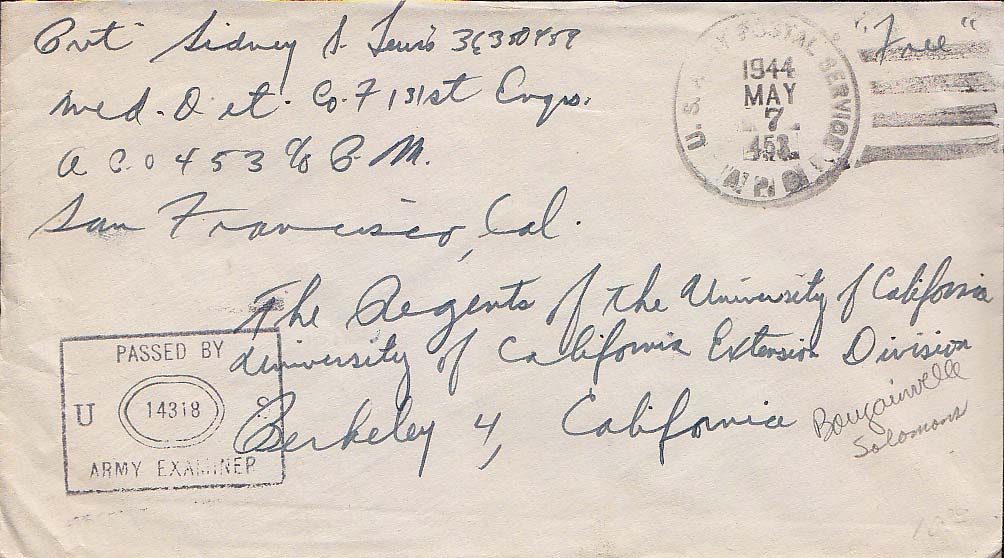 Pvt Sidney S. Lewis 36350459
Med. Det. Co. F 131st Engrs.
A P O 453 c/o P. M.
San Francisco, Cal.
"Free"
U. S. ARMY POSTAL SERVICE
1944
MAY
7
453
The Regents of the University of California
University of California Extension Division
Berkeley 4, California
Bougainville
Solomons
PASSED BY
U 14318 S
ARMY EXAMINER